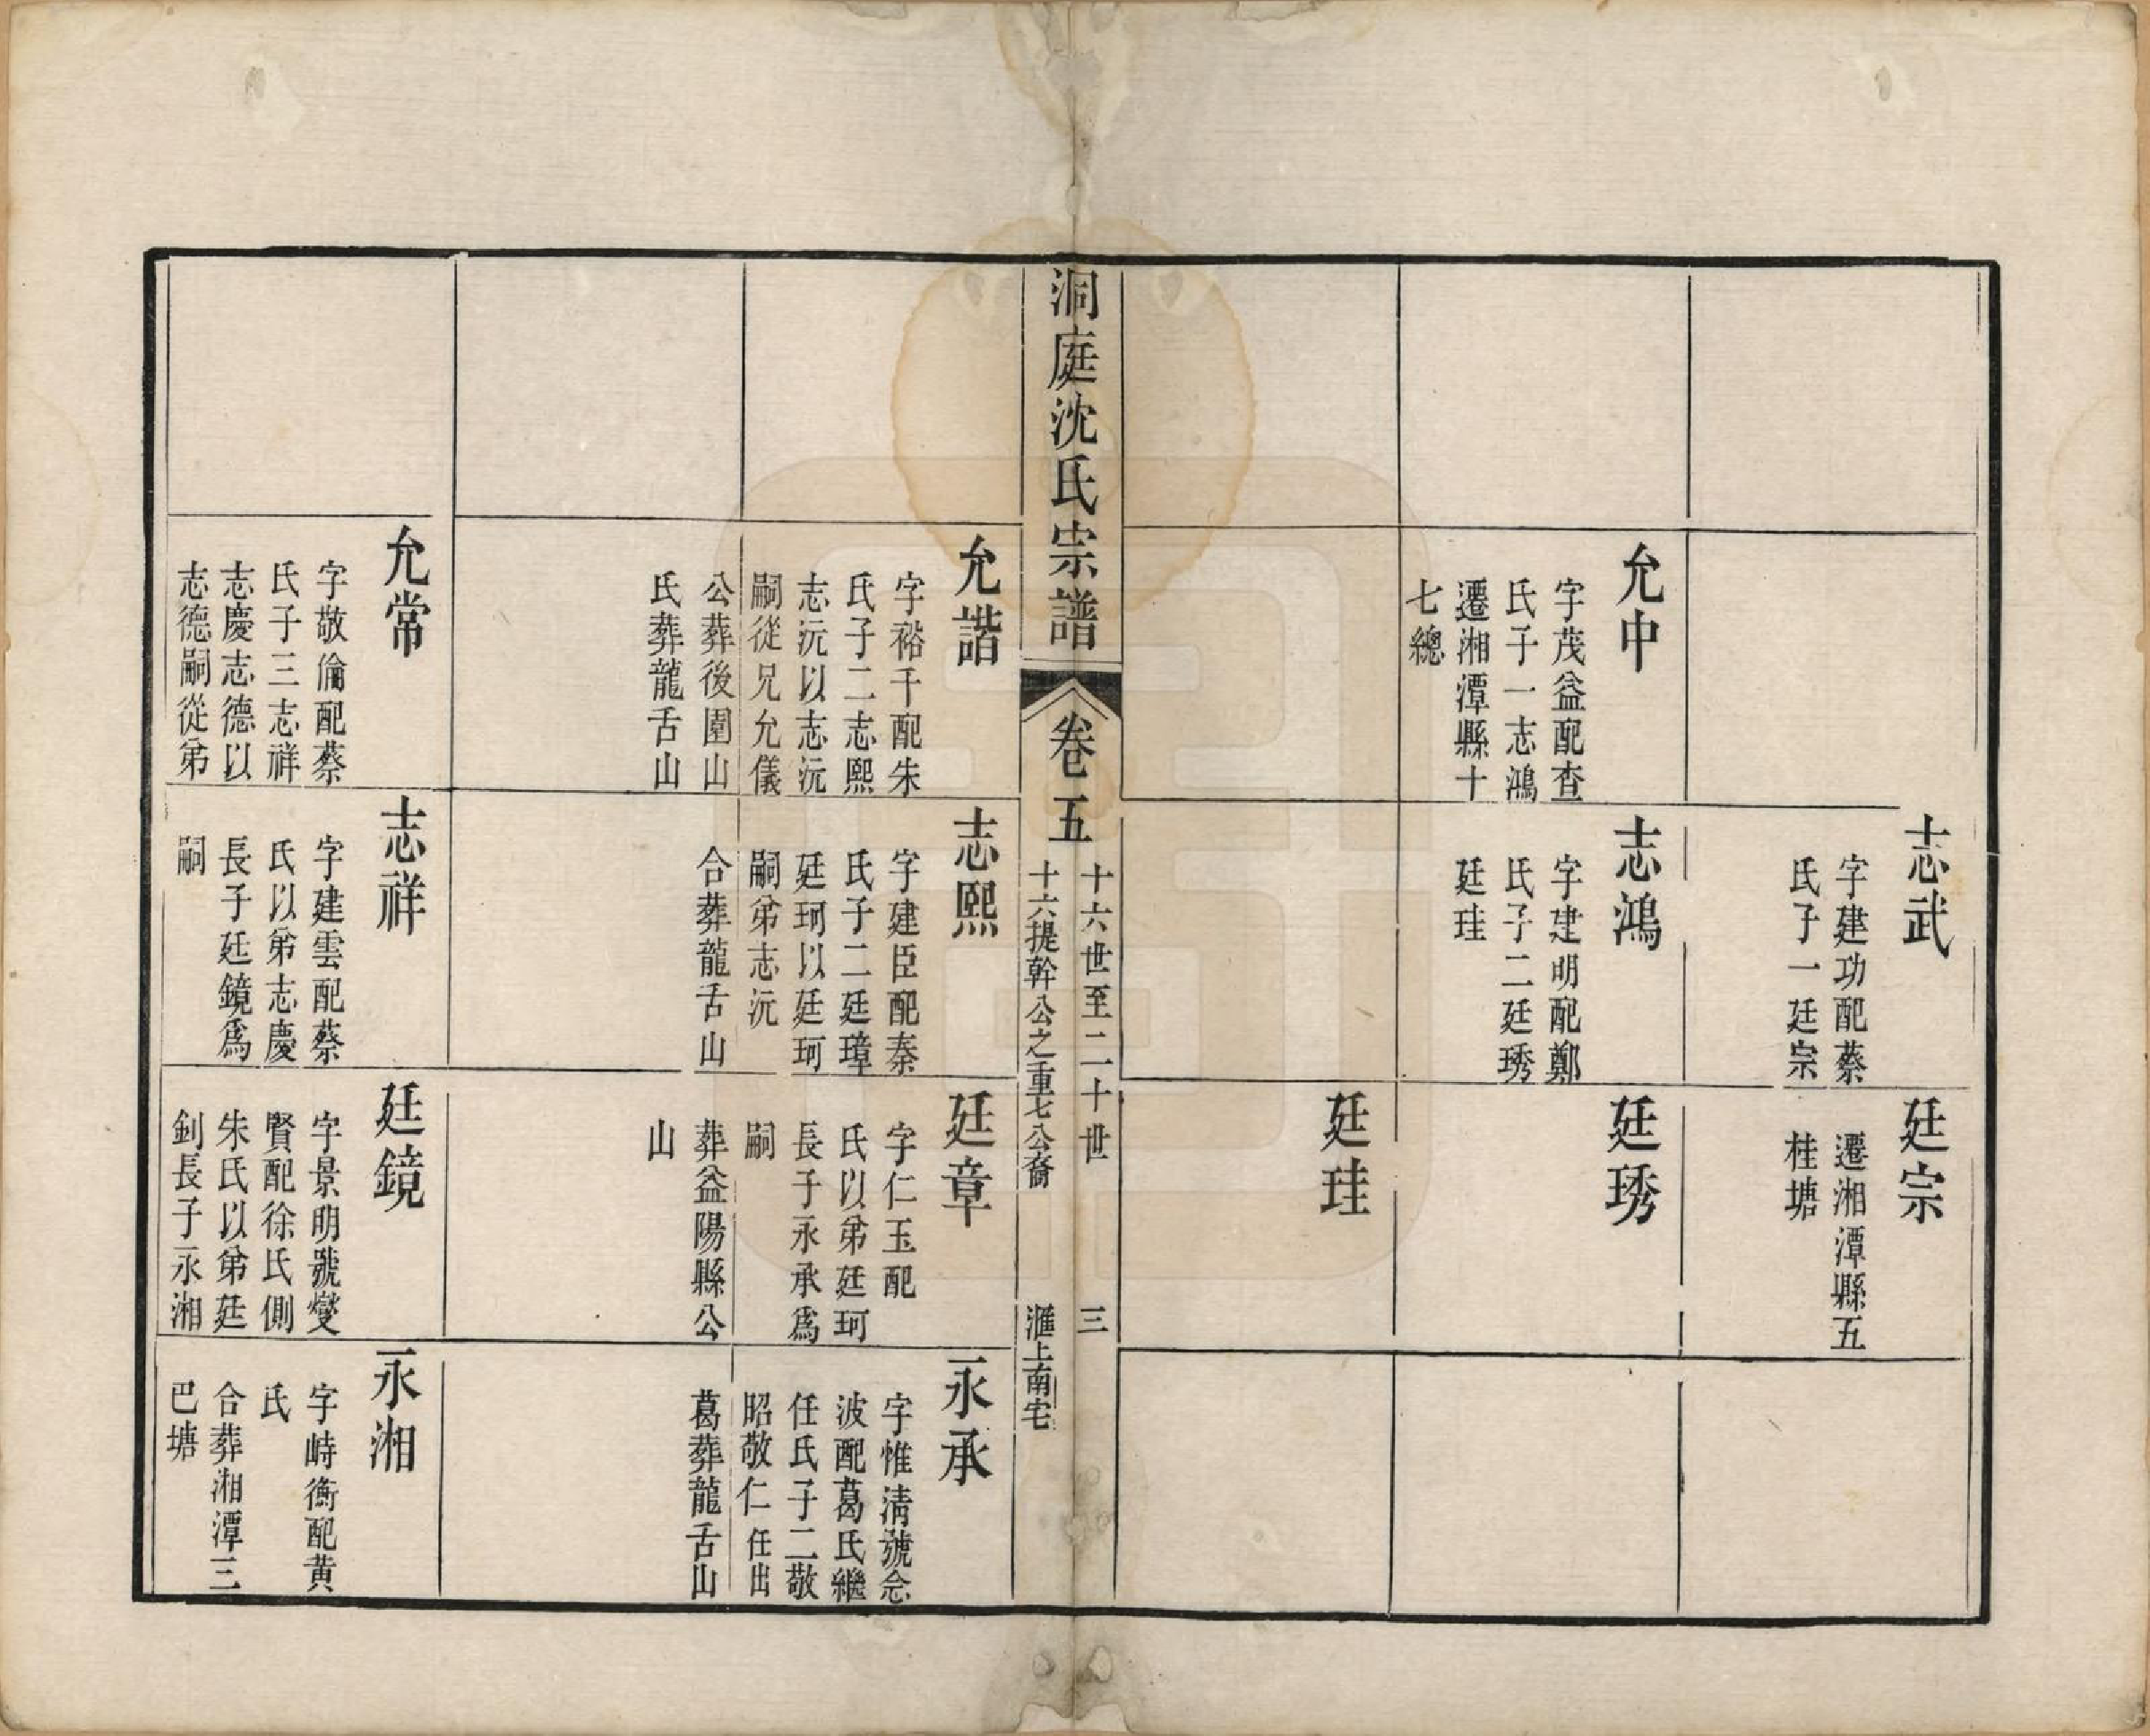 志武
字建功配蔡
氏子一廷宗
廷宗
遷湘潭縣五
桂塘
允中
字茂益配查
氏子一志鴻
遷湘潭縣十
七總
志鴻
字建明配鄭
氏子二廷琇
廷珪
廷琇
廷珪
洞庭沈氏宗譜
卷五
十六世至二十世
十六提幹公之重七公裔
三
滙上南宅
允諧
字裕千配朱
氏子二志熙
志沅以志沅
嗣從兄允儀
公葬後圍山
氏葬龍舌山
志熙
字建臣配秦
氏子二廷璋
廷珂以廷珂
嗣弟志沅
合葬龍舌山
廷章
字仁玉配
氏以弟廷珂
長子永承爲
嗣
葬益陽縣公
山
永承
字惟清號念
波配葛氏繼
任氏子二敬
昭敬仁任出
葛葬龍舌山
允常
字敬倫配蔡
氏子三志祥
志慶志德以
志德嗣從弟
志祥
字建雲配蔡
氏以弟志慶
長子廷鏡爲
嗣
廷鏡
字景明號燮
賢配徐氏側
朱氏以弟廷
釗長子永湘
永湘
字峙衡配黄
氏
合葬湘潭三
巴塘